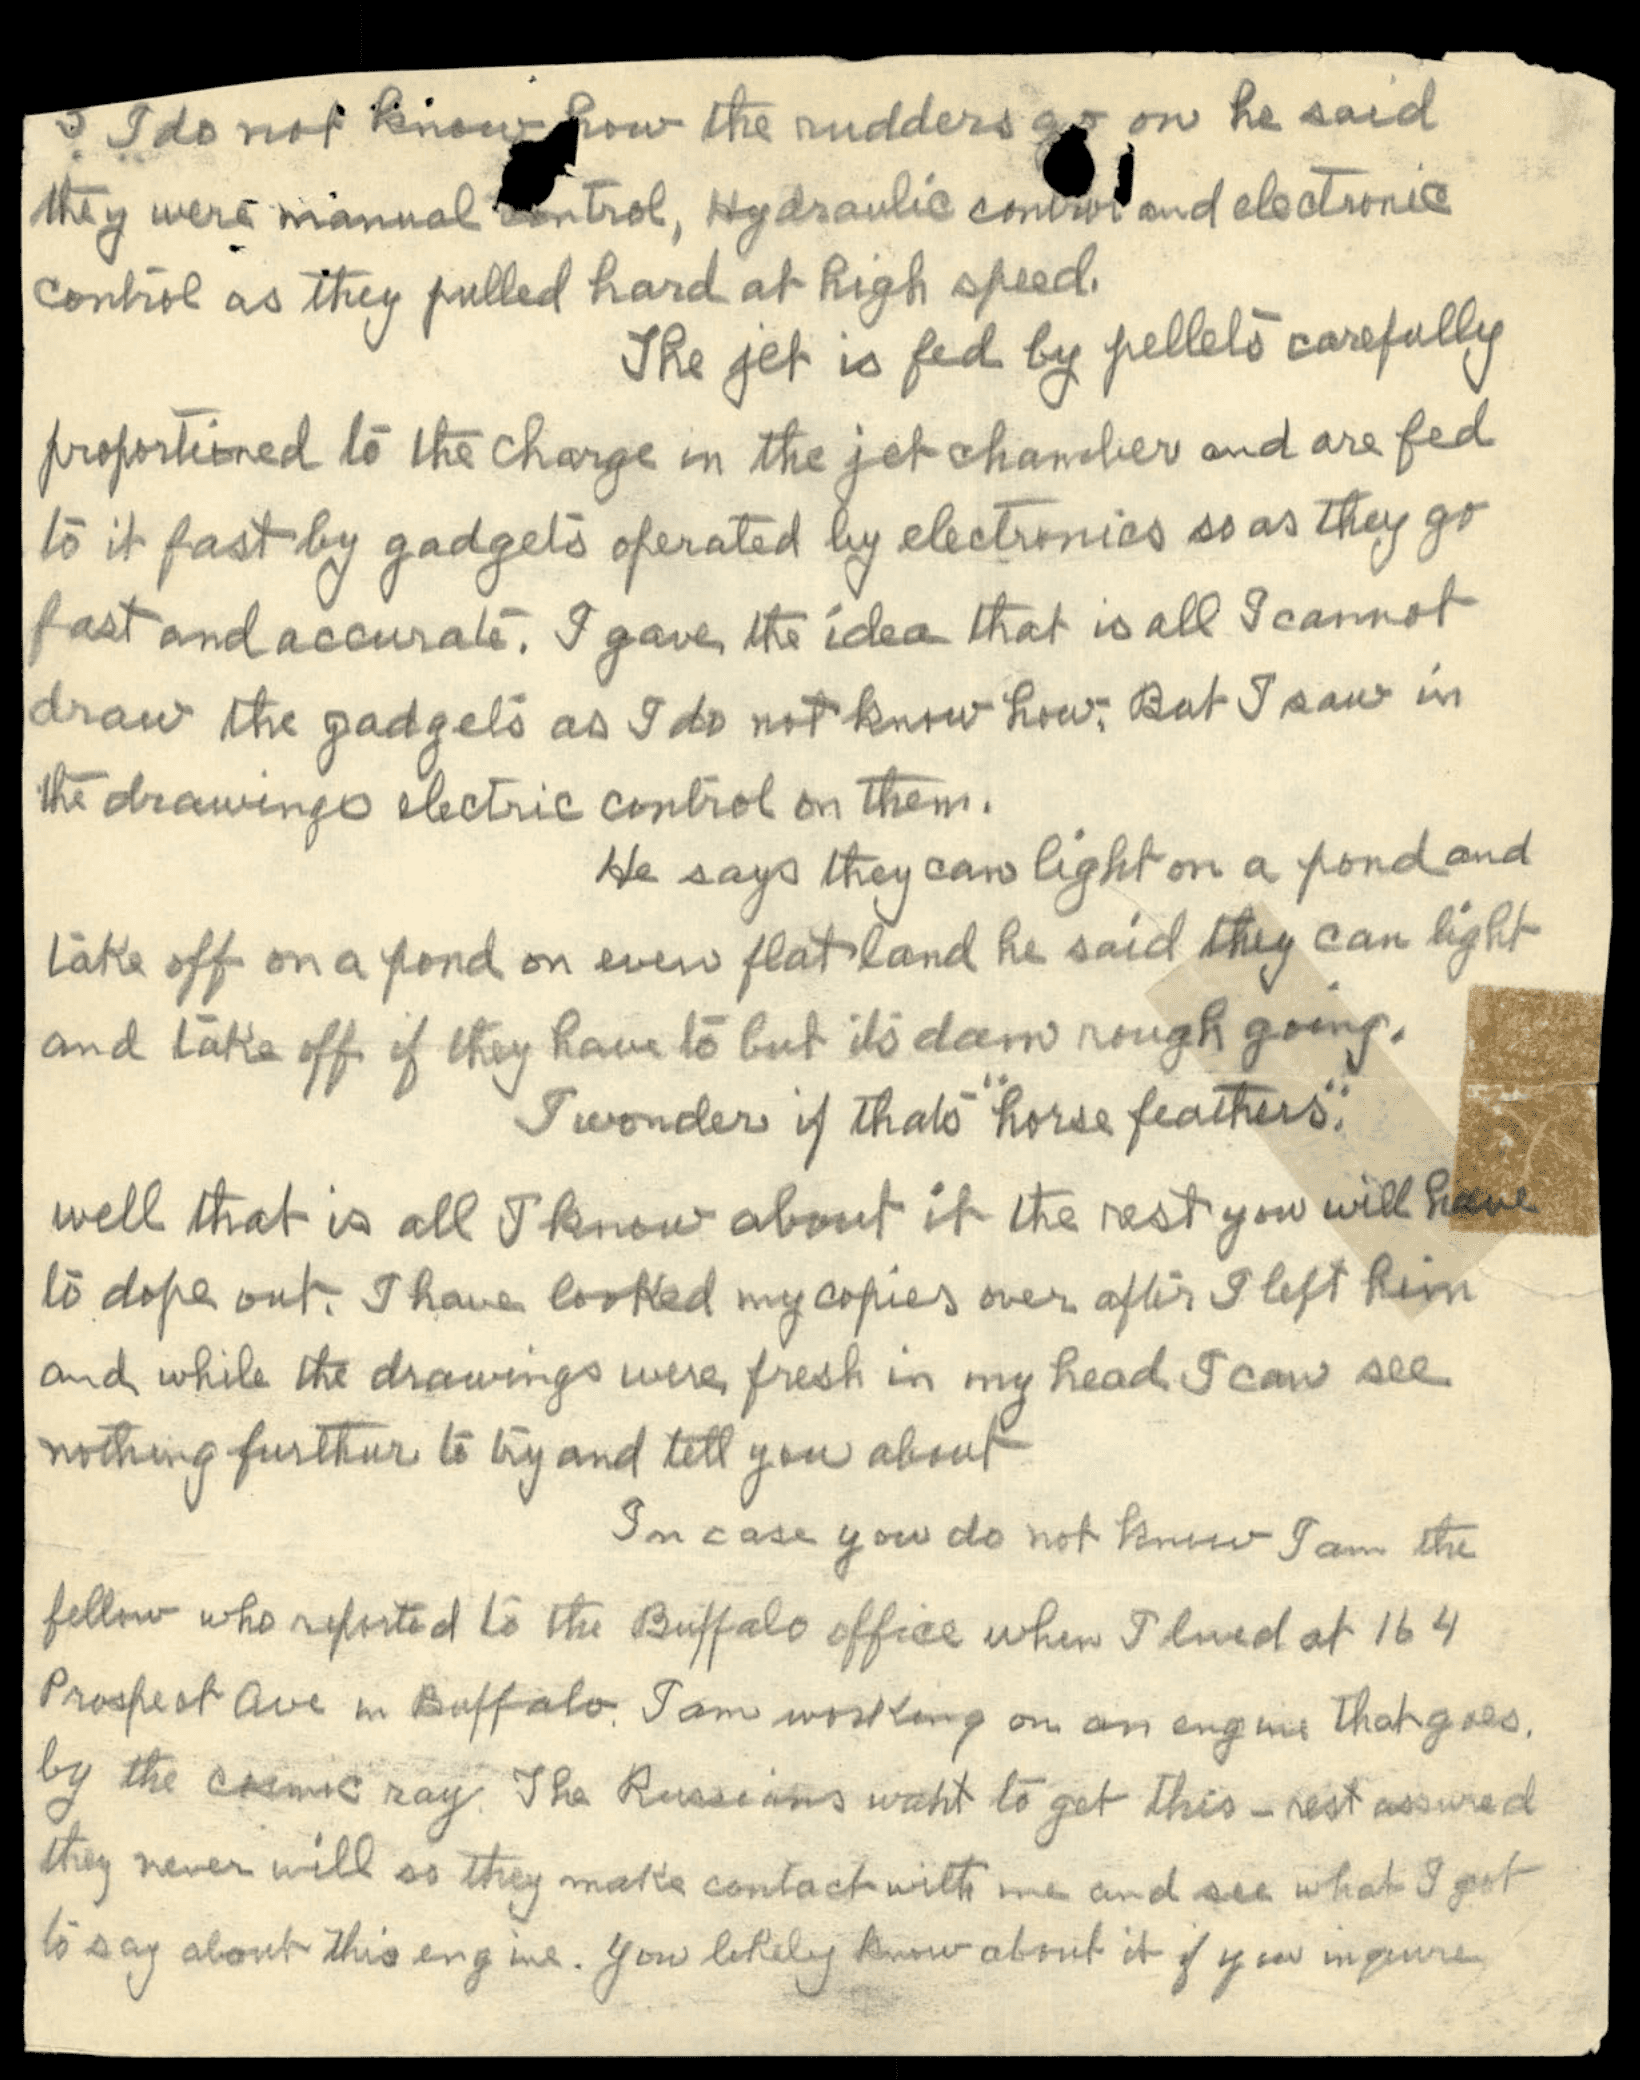 I do not know how the rudders go on he said
they were manual control, Hydraulic control and electronic
control as they pulled hard at high speed.
The jet is fed by pellets carefully
proportioned to the charge in the jet chamber and are fed
to it fast by gadgets operated by electronics so as they go
fast and accurate. I gave the idea that is all I cannot
draw the gadgets as I do not know how. But I saw in
the drawings electric control on them.
He says they can light on a pond and
take off on a pond on even flat land he said they can light
and take off if they have to but its dam rough going.
I wonder if thats "horse feathers".
well that is all I know about it the rest you will have
to dope out. I have looked my copies over after I left him
and while the drawings were fresh in my head I can see
nothing furthur to try and tell you about
In case you do not know I am the
fellow who reported to the Buffalo office when I lived at 164
Prospect Ave in Buffalo. I am working on an engine that goes.
by the cosmic ray. The Russians waht to get this - rest assured
they never will so they make contact with me and see what I got
to say about this engine. You likely know about it if you inquire